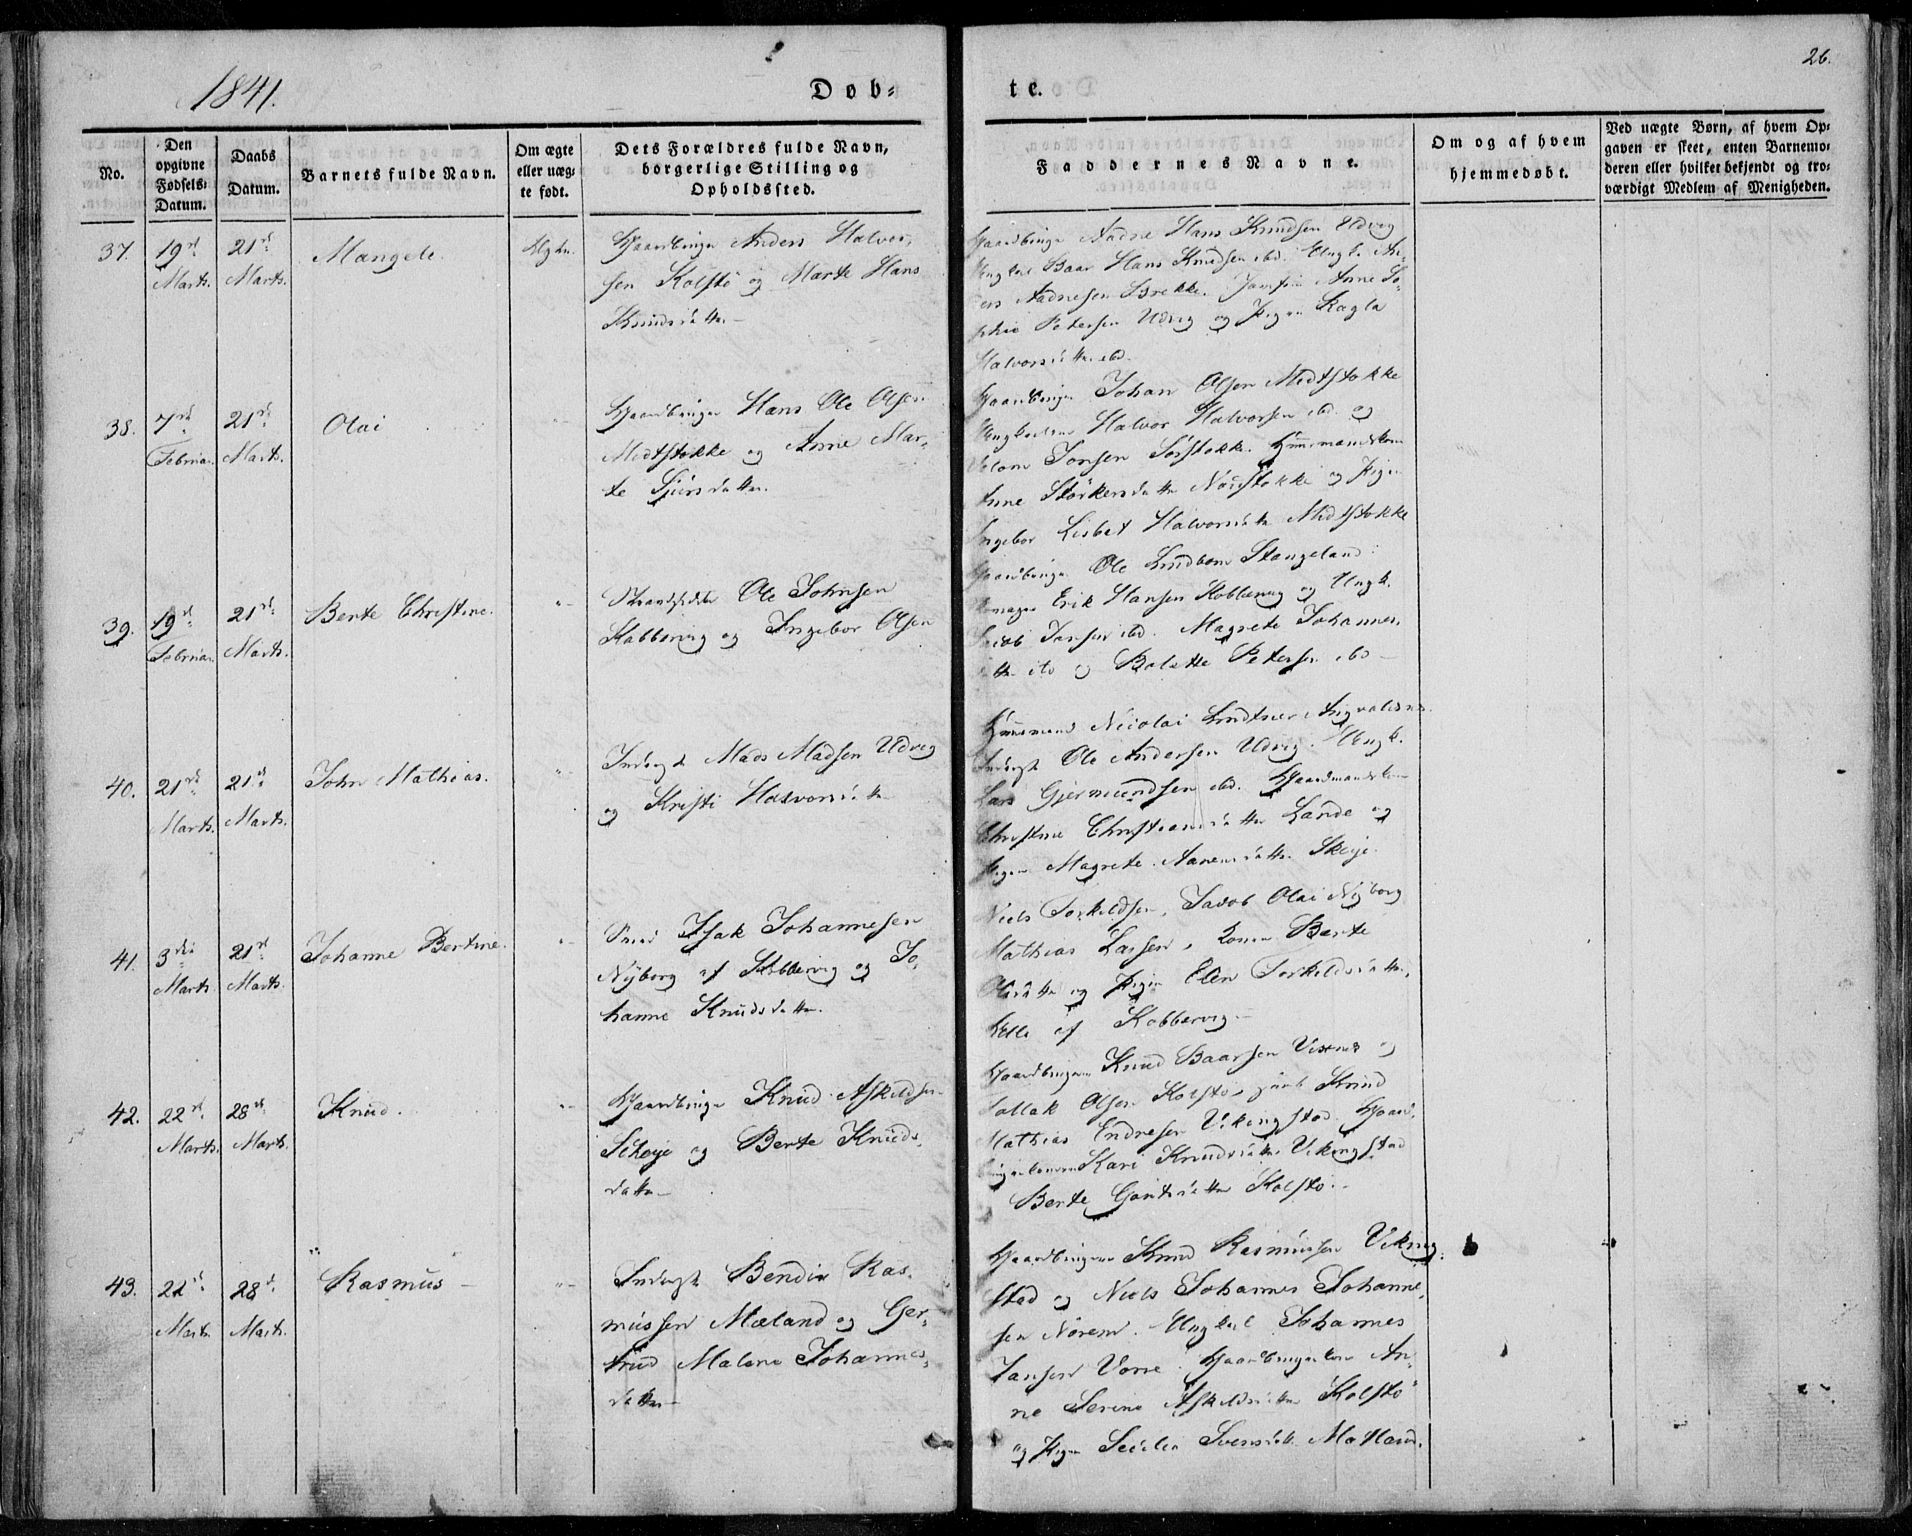 1841.
Døb-
te.
26.
No.
Den opgivne Fødsels-Datum.
Daabs Datum.
Barnets fulde Navn.
Om ægte eller uægte født.
Dets Forældres fulde Navn,
borgerlige Stilling og
Opholdssted.
Faddernes Navne.
Om og af hvem
hjemmedøbt.
Ved uægte Børn, af hvem Op-
gaven er skeet, enten Barnemo-
deren eller hvilket bekjendt og tro-
værdigt Medlem af Menigheden.
37. 19de Marts. 21de Marts. Mangele.
Gaardbruger Anders Halvor-
sen Kolstø og Marte Hans
Knudsdatter
Gaardbruger Hans Knudsen Udvig
Ungkarl Baar Hans Knudsen ibd. Ungk. An-
ders Aadnesen Brekke. Jomfru Anne So-
phie Petersen Udvig og Pigen Ragla
Halvorsdatter ibd.
38. 7de Februar. 21de Marts. Olai
Gaardbruger Hans Ole Olsen
Midtstokke og Anne Mar-
te Sjursdatter.
Gaardbruger Johan Olsen Midtstokke
Halvor Halvorsen ibd. og
Jonsen Sørstokke. Huusmandskone
Anne Størkersdatter Nordstokke og Pigen
Ingebor Lisbet Halvorsdatter Midtstokke
39. 19de Februar. 21de Marts. Berte Christine.
Strandsidder Ole Johnsen
Kabbervig og Ingebor Olsen
Gaardbruger Ole Lindboe Stangeland
Erik Hansen Kobbervig og Ungk.
Jacob Jansen ibd. Magrete Johannes-
datter ibd og Bolette Petersen ibd
40. 21de Marts. 21de Marts. John Mathias.
Inderst Mads Madsen Udvig
og Kristi Halvorsdatter
Huusmand Nicolai Lindtner
Inderst Ole Andersen Udvig. Ungk.
Lars Gjermundsen ibd. Gaardmandskone
Christine Christiansdatter Lande og
Pigen Magrete Aanensdatter Skeije.
41. 3die Marts. 21de Marts. Johanne Bertine.
Smed Isak Johannesen
Nyborg af Kobbervig og Jo-
hanne Knudsdatter.
Niels Torkildsen, Jacob Olai Nyborg
Mathias Larsen, Konen Berte
Olsdatter og Pigen Elen Torkildsdatter,
alle af Kobbervig
42. 22de Marts. 28de Marts. Knud.
Gaardbruger Knud Askildsen
Skeije og Berte Knuds-
datter
Gaardbrugerne Knud Baarsen Visnes og
Tollak Olsen Kolstø, samt Knud
Mathias Endresen Vikingstad. Gaard-
brugerkonen Kari Knudsdatter Vikingstad
Berte Gautsdatter Kolstø.
43. 22de Marts. 28de Marts. Rasmus
Inderst Bendix Ras-
mussen Mæland og Ger-
trud Malene Johannes-
datter
Gaardbrugerne Knud Rasmussen Viking-
stad og Niels Johannes Johanne-
sen Norem. Ungkarl Johannes
Jansen Vorre. Gaardbrugerkone An-
ne Serine Askildsdatter Kolstø
og Pigen Secilia Svensdatt. Mæland.